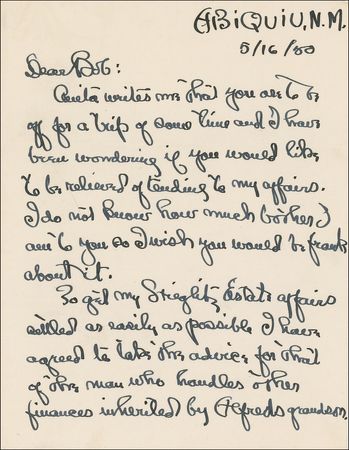 ABIQUIU, N.M.
5/16/50
Dear Bob:
Anita writes me that you are to be
off for a trip of some time and I have
been wondering if you would like
to be relieved of tending to my affairs.
I do not know how much bother I
am to you so I wish you would be frank
about it.
To get my Stieglitz Estate affairs
settled as easily as possible I have
agreed to take the advice for that
of the man who handles other
finances inherited by Alfreds grandson.